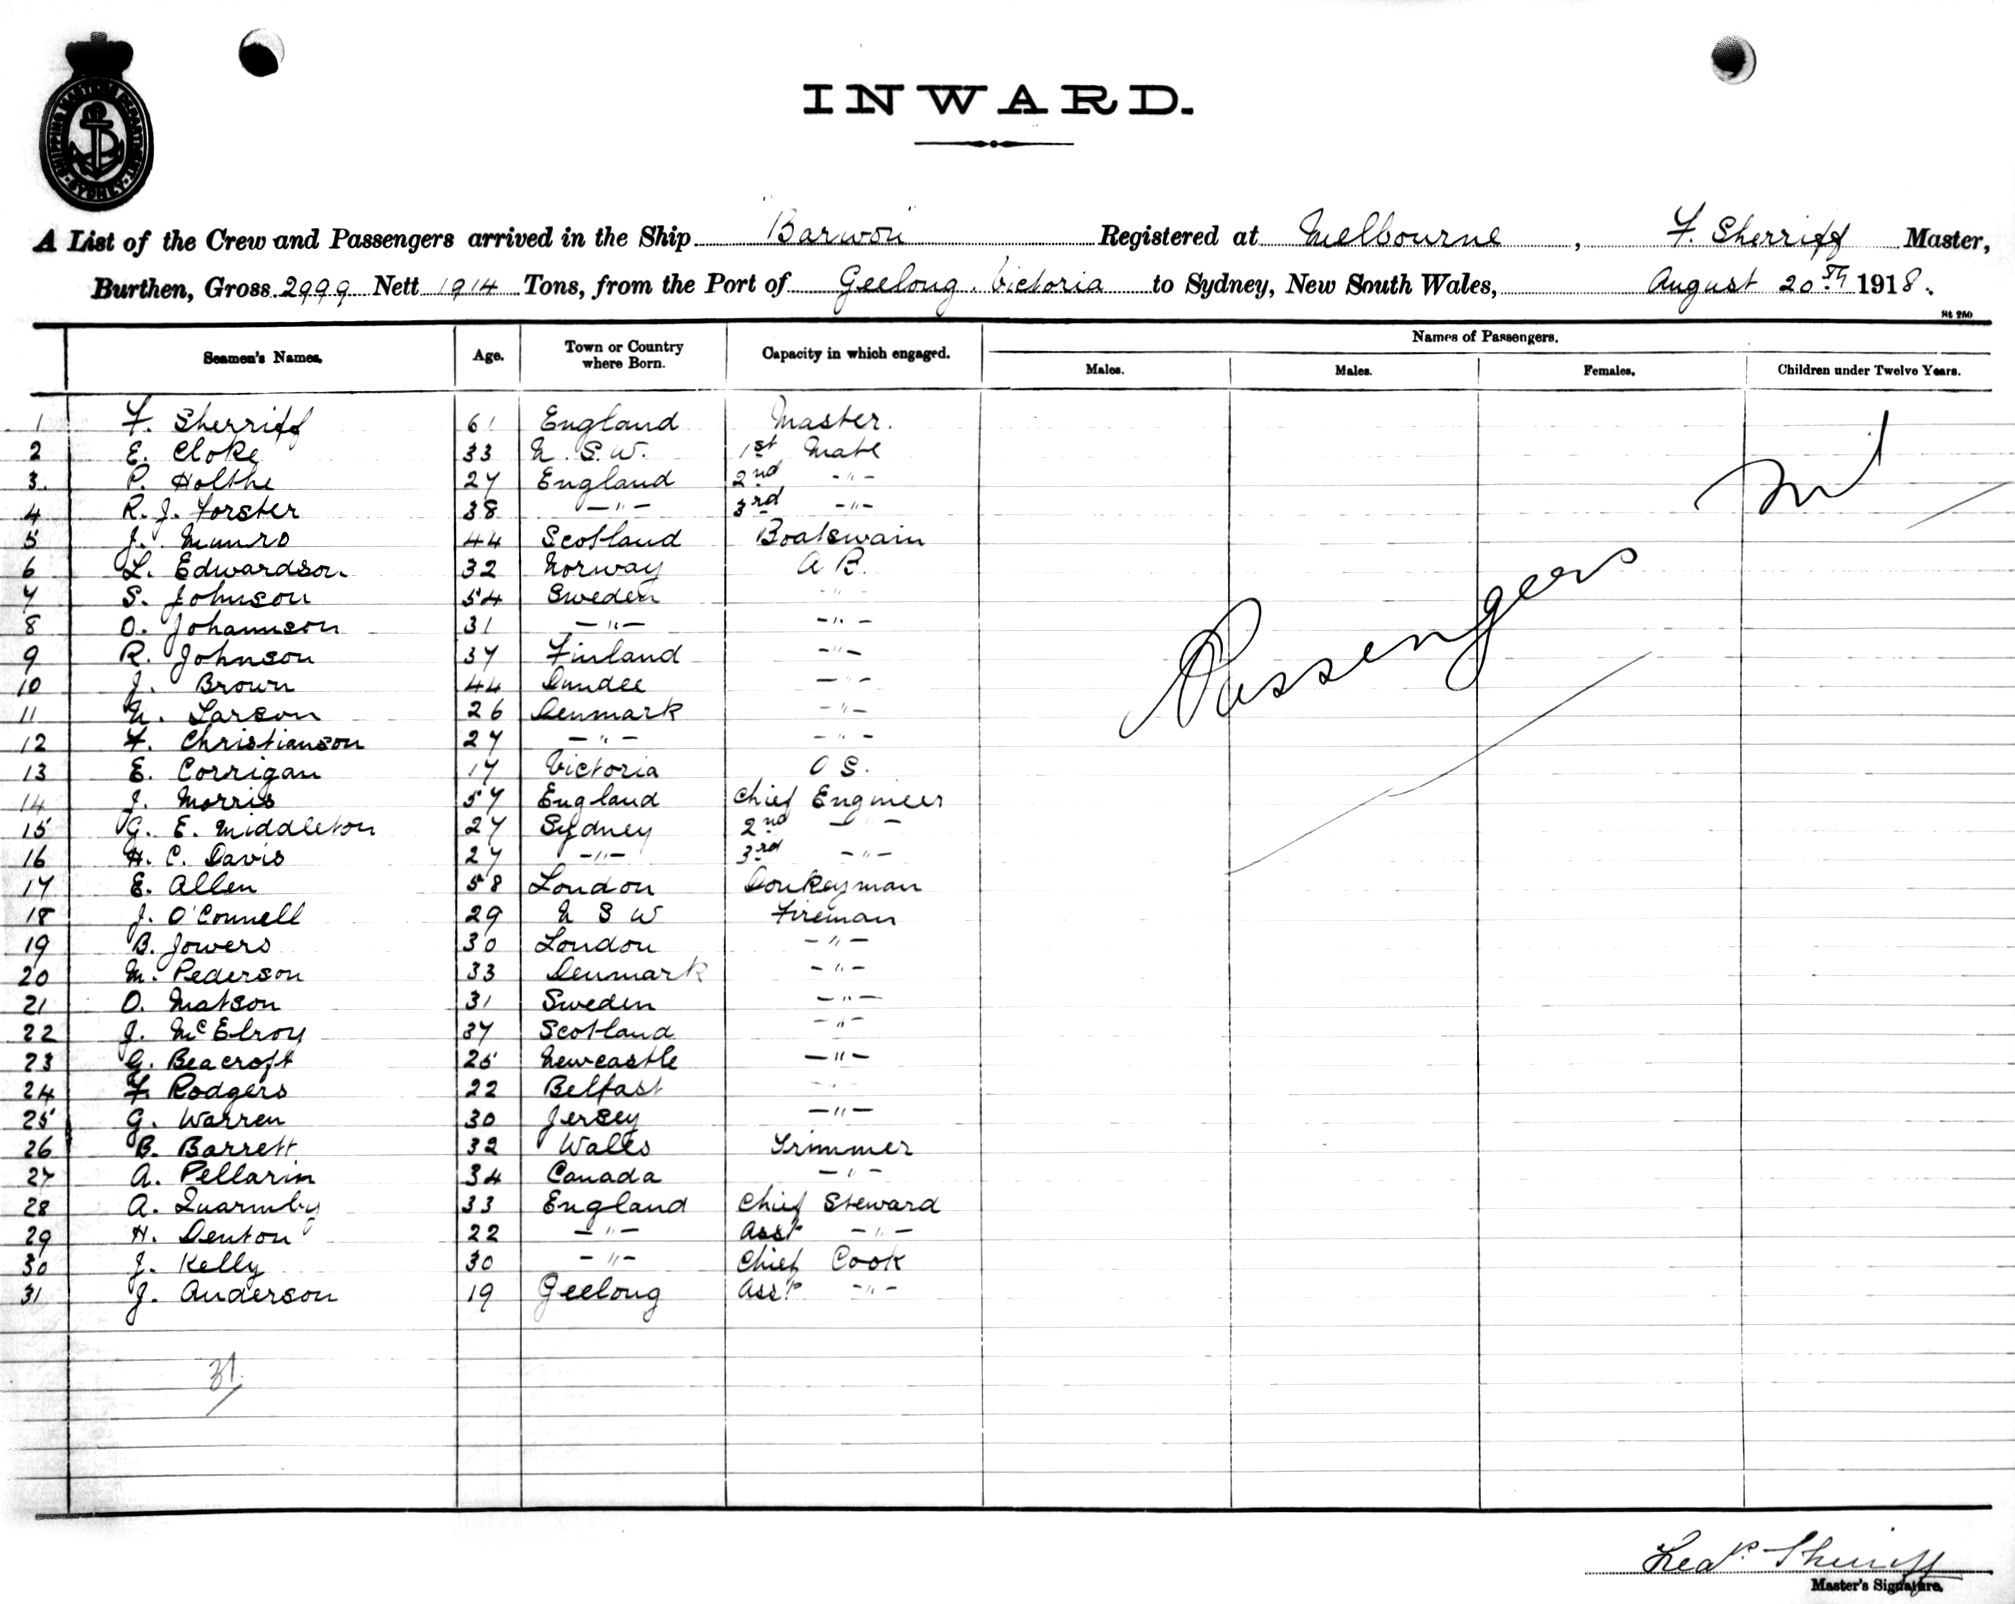 INWARD.
SHIPPING MASTERS DEPARTMENT SYDNEY
A List of the Crew and Passengers arrived in the Ship "Barwon" Registered at Melbourne, F. Sherriff Master,
Burthen, Gross 2999 Nett 1914 Tons, from the Port of Geelong. Victoria to Sydney, New South Wales, August 20th 1918.
St 250
Seamen's Names. Age. Town or Country where Born. Capacity in which engaged. Names of Passengers.
Males. Males. Females. Children under Twelve Years.
1 F. Sherriff 61 England Master.
2 E. Cloke 33 N.S.W. 1st Mate
3. P. Holthe 27 England 2nd -"-
4 R. J. Forster 38 -"- 3rd -"-
5 J. Munro 44 Scotland Boatswain
6 L. Edwardson. 32 Norway A B.
7 S. Johnson 54 Sweden -"-
8 O. Johannson 31 -"- -"-
9 R. Johnson 37 Finland -"-
10 J. Brown 44 Dundee -"-
11 N. Larson 26 Denmark -"-
12 F. Christianson 27 -"- -"-
13 E. Corrigan 17 Victoria O S.
14 J. Morris 57 England Chief Engineer
15 G. E. Middleton 27 Sydney 2nd -"-
16 H. C. Davis 27 -"- 3rd -"-
17 E. Allen 58 London Donkeyman
18 J. O'Connell 29 N S W Fireman
19 B. Jowers 30 London -"-
20 M. Pederson 33 Denmark -"-
21 O. Matson 31 Sweden -"-
22 J. McElroy 37 Scotland -"-
23 G. Beacroft 25 Newcastle -"-
24 F. Rodgers 22 Belfast -"-
25 G. Warren 30 Jersey -"-
26 B. Barrett. 32 Wales Trimmer
27 A. Pellarin 34 Canada -"-
28 A. Quarmby 33 England Chief Steward
29 H. Denton 22 -"- Asst -"-
30 J. Kelly 30 -"- Chief Cook
31 J. Anderson 19 Geelong Asst -"-
Passengers Nil
31
Fredk Sherriff
Master's Signature.